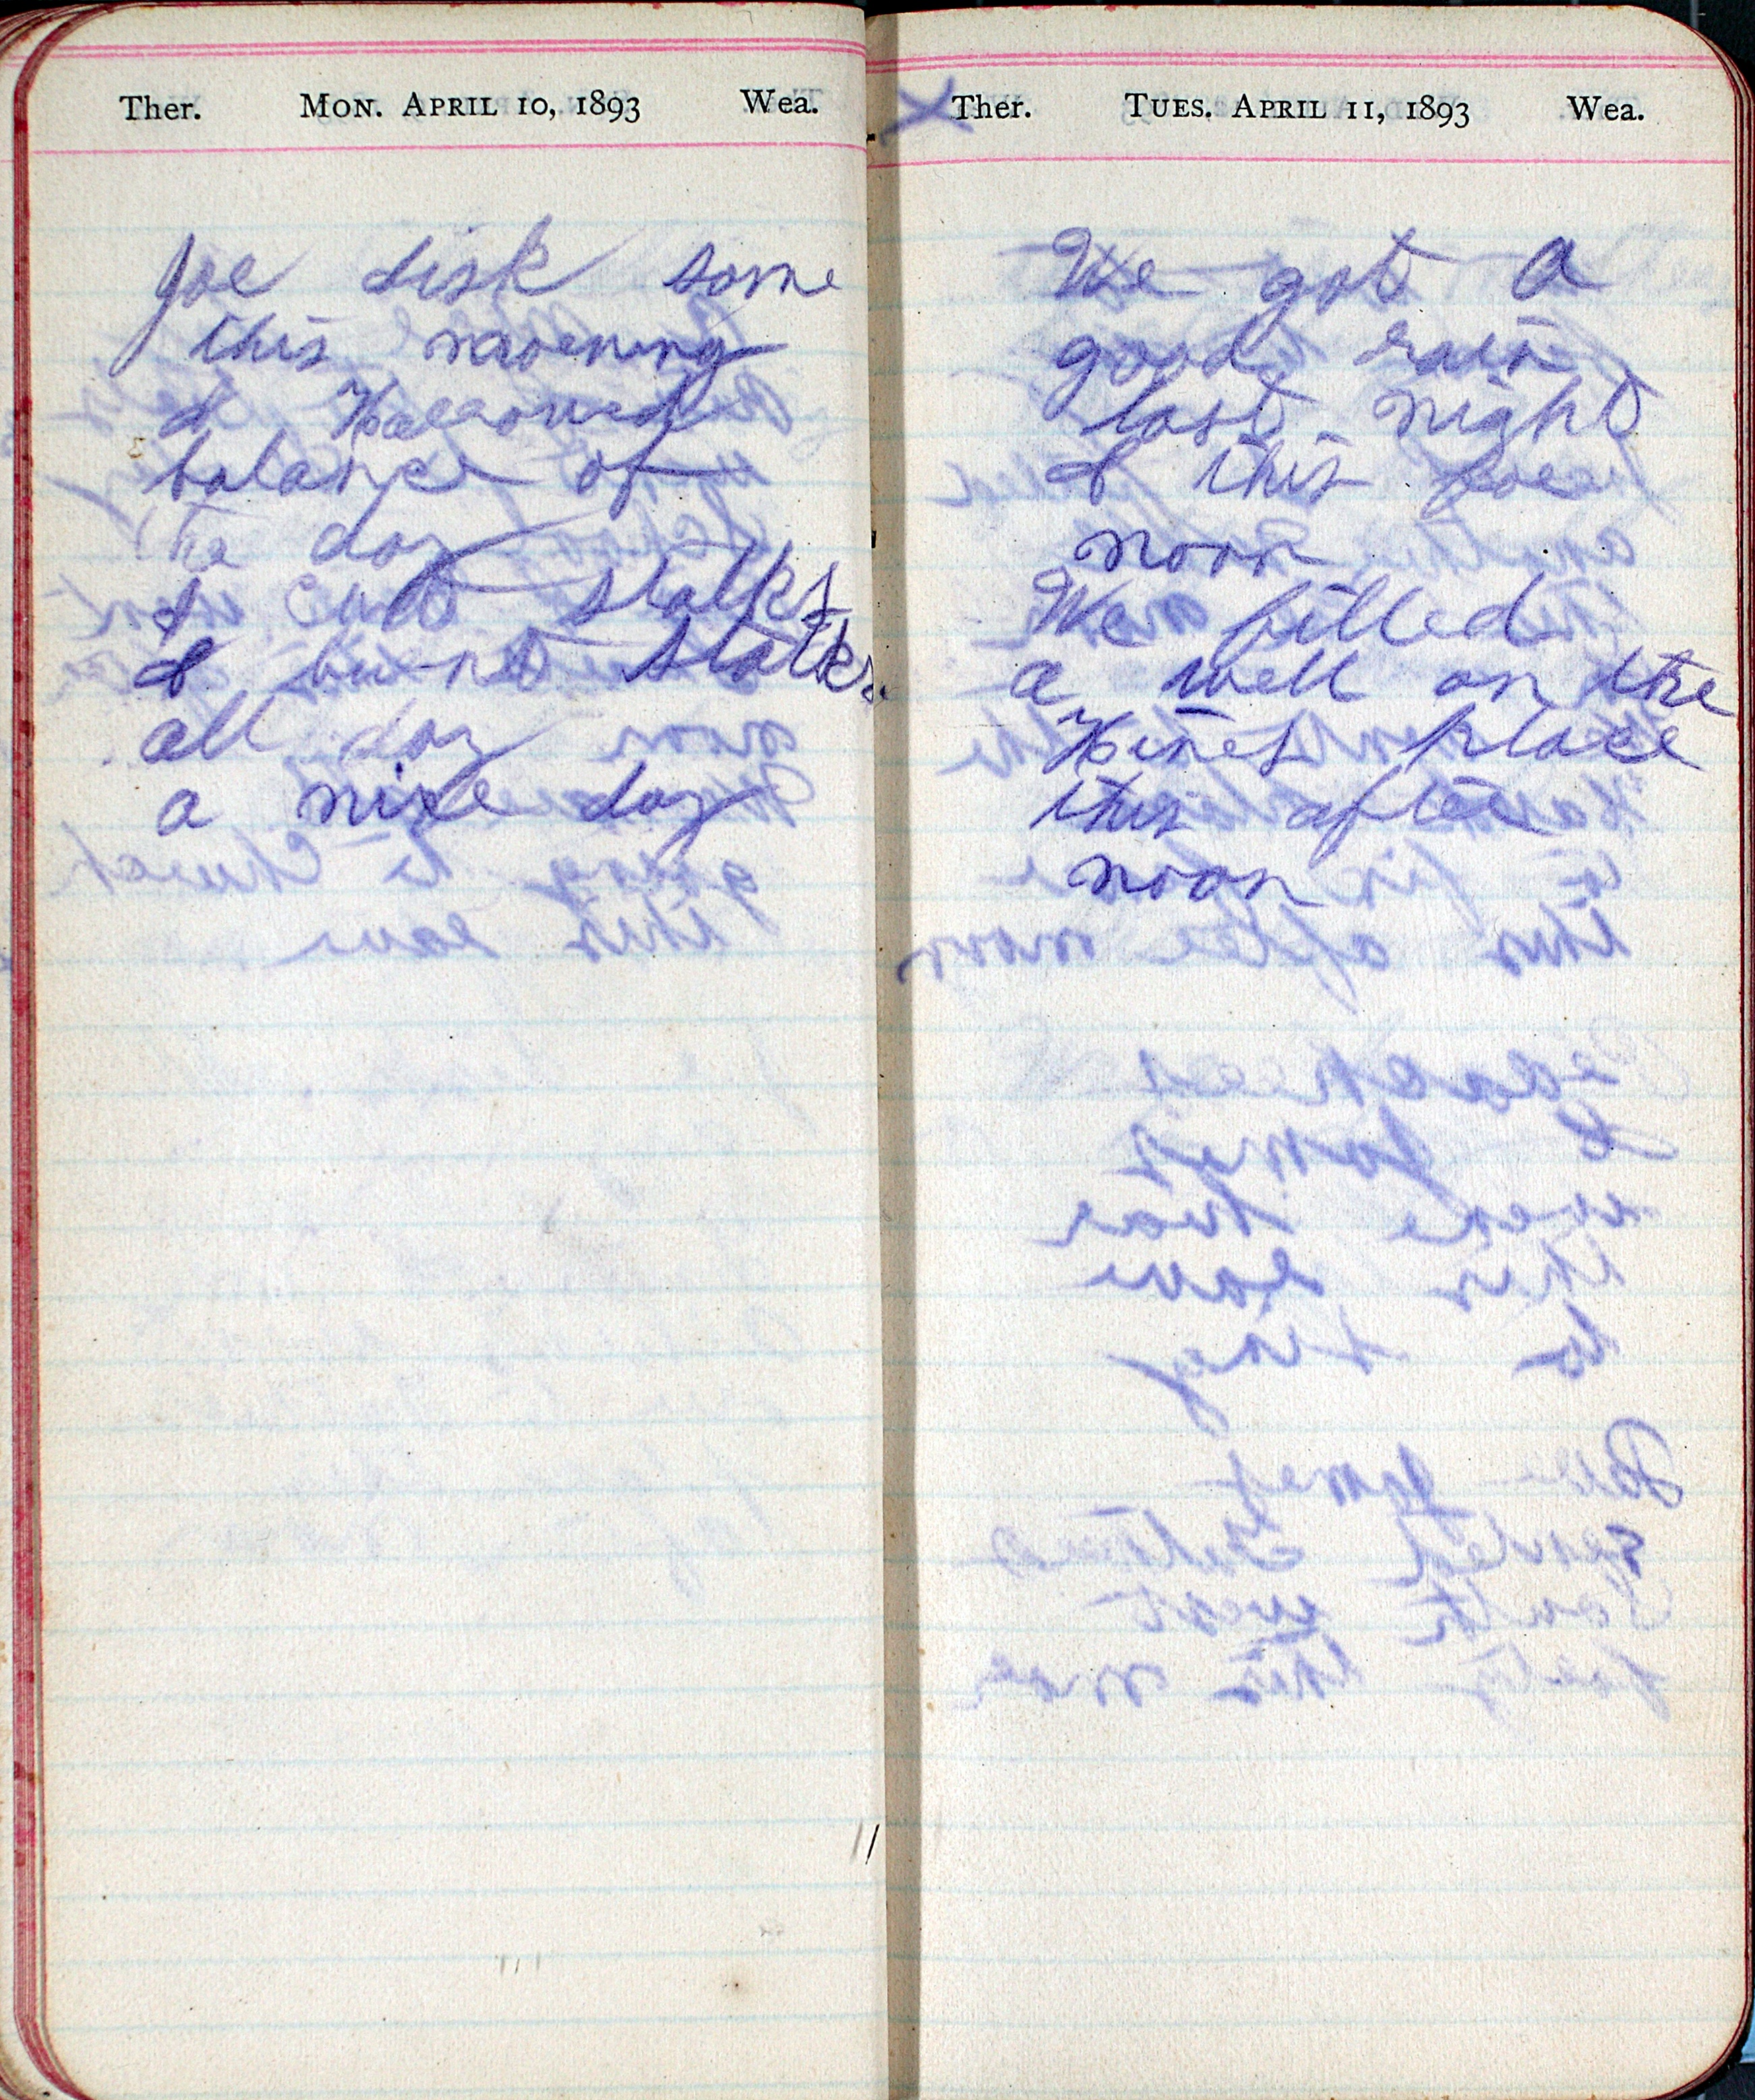 Ther. Mon. April 10, 1893 Wea.
Joe disk some
this morening
& Harrowed
balance of
the day
I cut stalks
& burnt stalks.
all day
a nice day
Ther. Tues. April 11, 1893 Wea.
We got a
good rain
last night
& this fore
noon
We filled
a well on the
Hines place
this after
noon